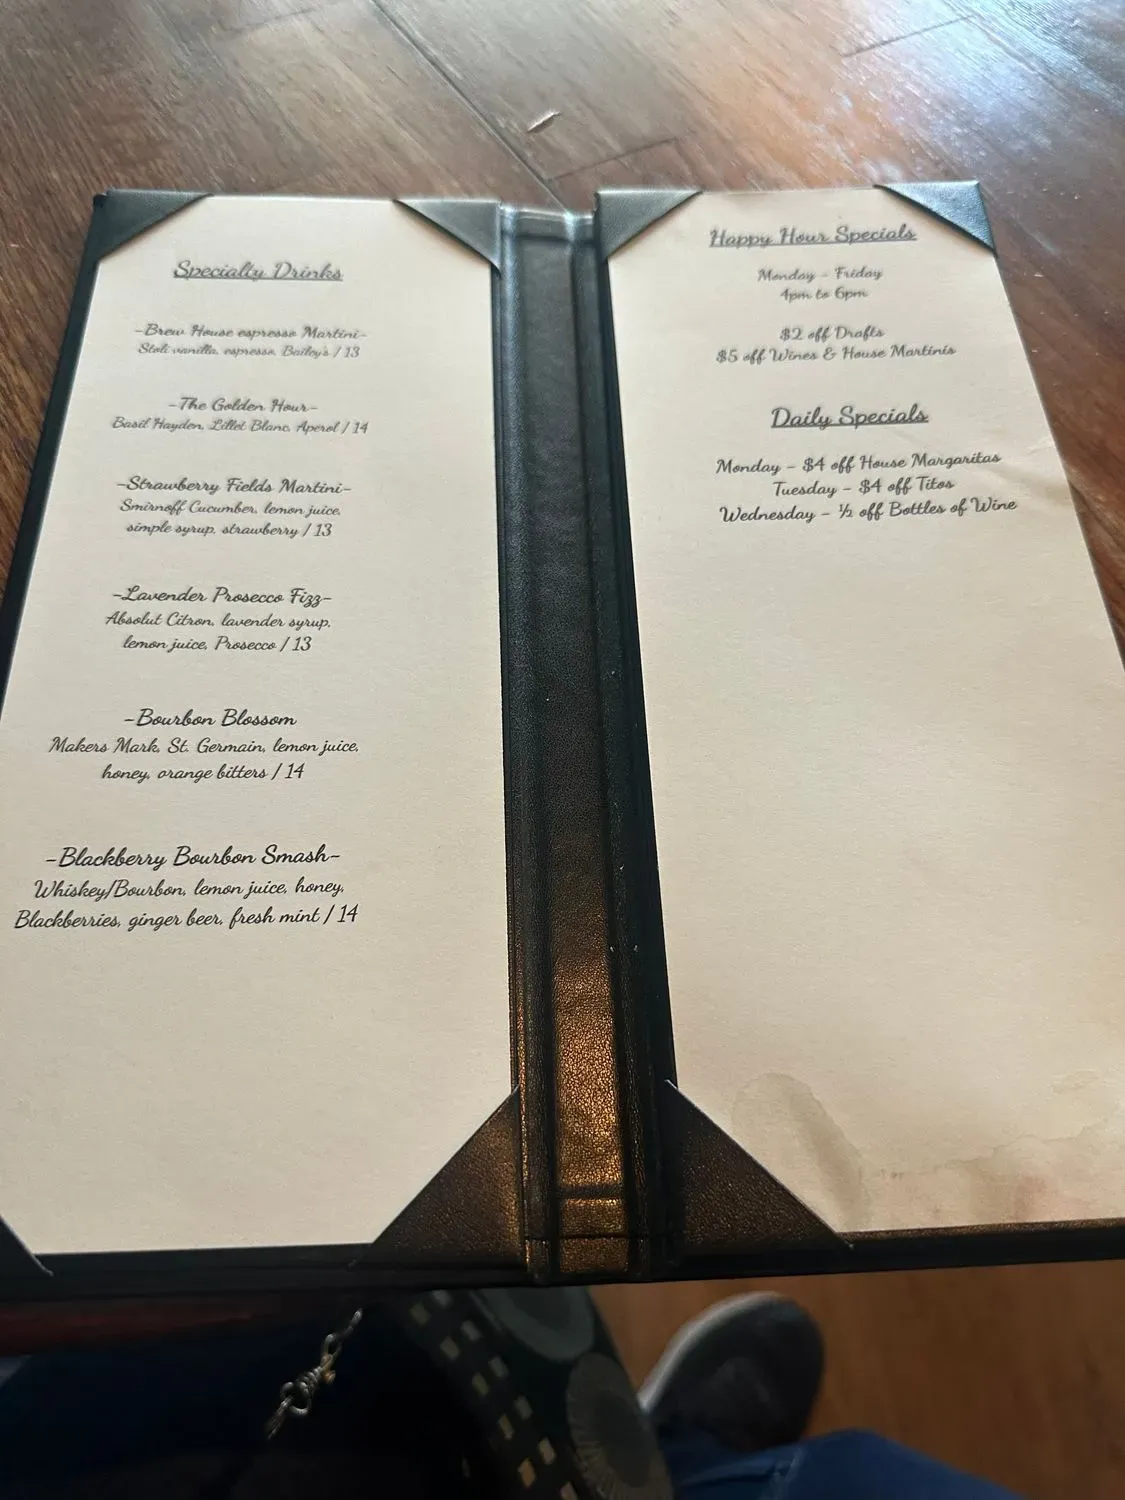 Specialty Drinks
-Brew House espresso Martini-
Stoli vanilla, espresso, Bailey's / 13
-The Golden Hour-
Basil Hayden, Lillet Blanc, Aperol / 14
-Strawberry Fields Martini-
Smirnoff Cucumber, lemon juice,
simple syrup, strawberry / 13
-Lavender Prosecco Fizz-
Absolut Citron, lavender syrup,
lemon juice, Prosecco / 13
-Bourbon Blossom
Makers Mark, St. Germain, lemon juice,
honey, orange bitters / 14
-Blackberry Bourbon Smash-
Whiskey/Bourbon, lemon juice, honey,
Blackberries, ginger beer, fresh mint / 14
Happy Hour Specials
Monday - Friday
4pm to 6pm
$2 off Drafts
$5 off Wines & House Martinis
Daily Specials
Monday - $4 off House Margaritas
Tuesday - $4 off Titos
Wednesday - ½ off Bottles of Wine